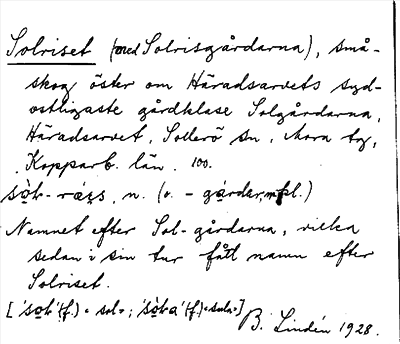 Solriset (med Solrisgårdarna), små-
skog öster om Häradsarvets syd-
ostligaste gårdklase Solgårdarna,
Häradsarvet, Sollerö sn, Mora tg,
Kopparb. län. 100.
n. (o. - pl.)
Namnet efter Sol-gårdarna, vilka
sedan i sin tur fått namn efter
Solriset.
(f.) = sol=; (f.)
B. Lindén 1928.